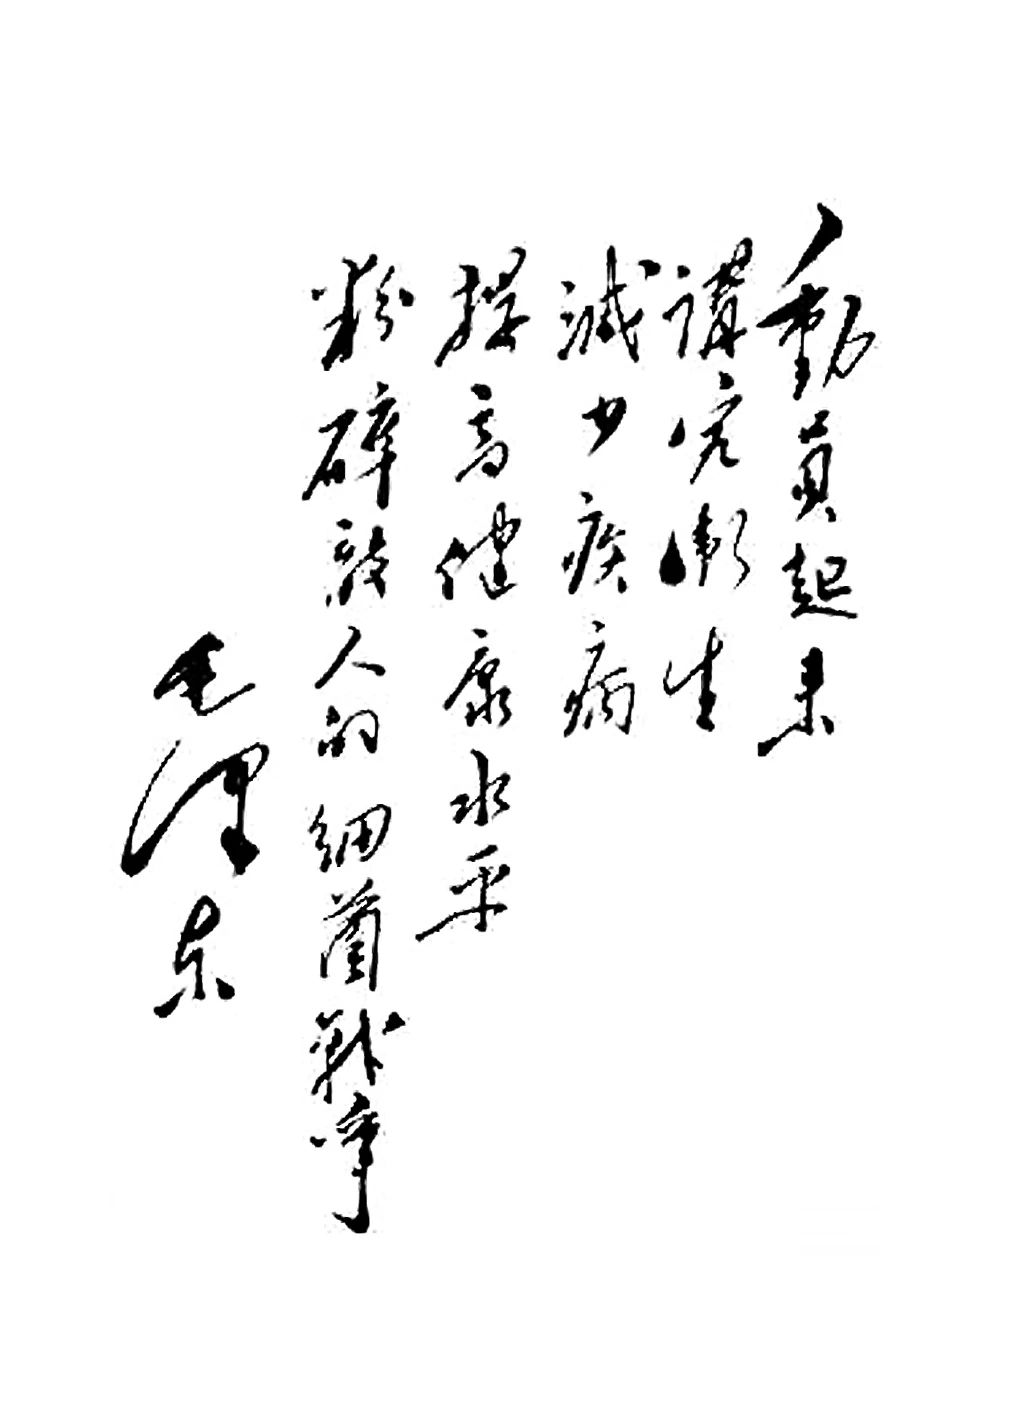 動員起来
講究衛生
減少疾病
提高健康水平
粉碎敌人的細菌戰爭
毛澤东